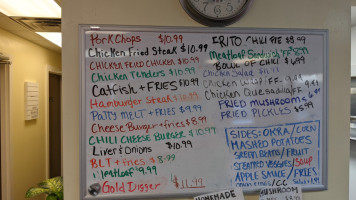 Pork Chops $10.99
Chicken Fried Steak $10.99
CHICKEN FRIED CHICKEN $10.99
Chicken Tenders $10.99
Catfish + FRIES $10.99
Hamburger Steak $10.99
PATTY MELT + FRIES $9.99
Cheese Burger + fries $8.99
CHILI CHEESE BURGER $10.99
Liver & Onions $10.99
BLT + fries $8.99
Meatloaf $9.99
Gold Digger $11.99
FRITO CHILI PIE $8.99
Meatloaf Sandwich
BOWL OF CHILI
Chicken Salad
Chicken Wrap
Chicken Quesadilla
FRIED MUSHROOM
FRIED PICKLES $5.99
SIDES: OKRA/CORN
MASHED POTATOES
GREEN BEANS/FRUIT
STEAMED VEGGIES/SOUP
APPLE SAUCE/FRIES
HOMEMADE
MUSHROOM